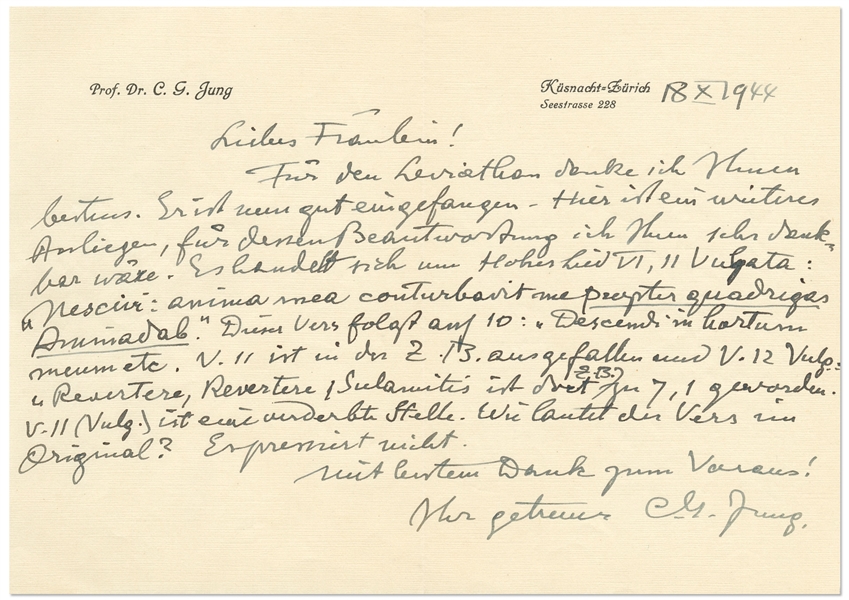 Prof. Dr. C. G. Jung
Küsnacht=Zürich 18 X 1944
Seestrasse 228
Liebes Fräulein!
Für den Leviathan danke ich Ihnen
bestens. Er ist nun gut eingefangen – Hier ist ein weiteres
Anliegen, für dessen Beantwortung ich Ihnen sehr dank=
bar wäre. Es handelt sich um Hohes Lied VI, 11 Vulgata:
"Nescivi: anima mea conturbavit me propter quadrigas
Aminadab." Dieser Vers folgt auf 10: "Descendi in hortum
meum etc. V. 11 ist in der Z. B. ausgefallen und V. 12 Vulg.:
"Revertere, Revertere, Sulamitis ist dort (Z.B.) zu 7, 1 geworden.
V. 11 (Vulg.) ist eine verderbte Stelle. Wie lautet der Vers im
Original? Es pressiert nicht.
Mit bestem Dank zum Voraus!
Ihr getreuer C. G. Jung.